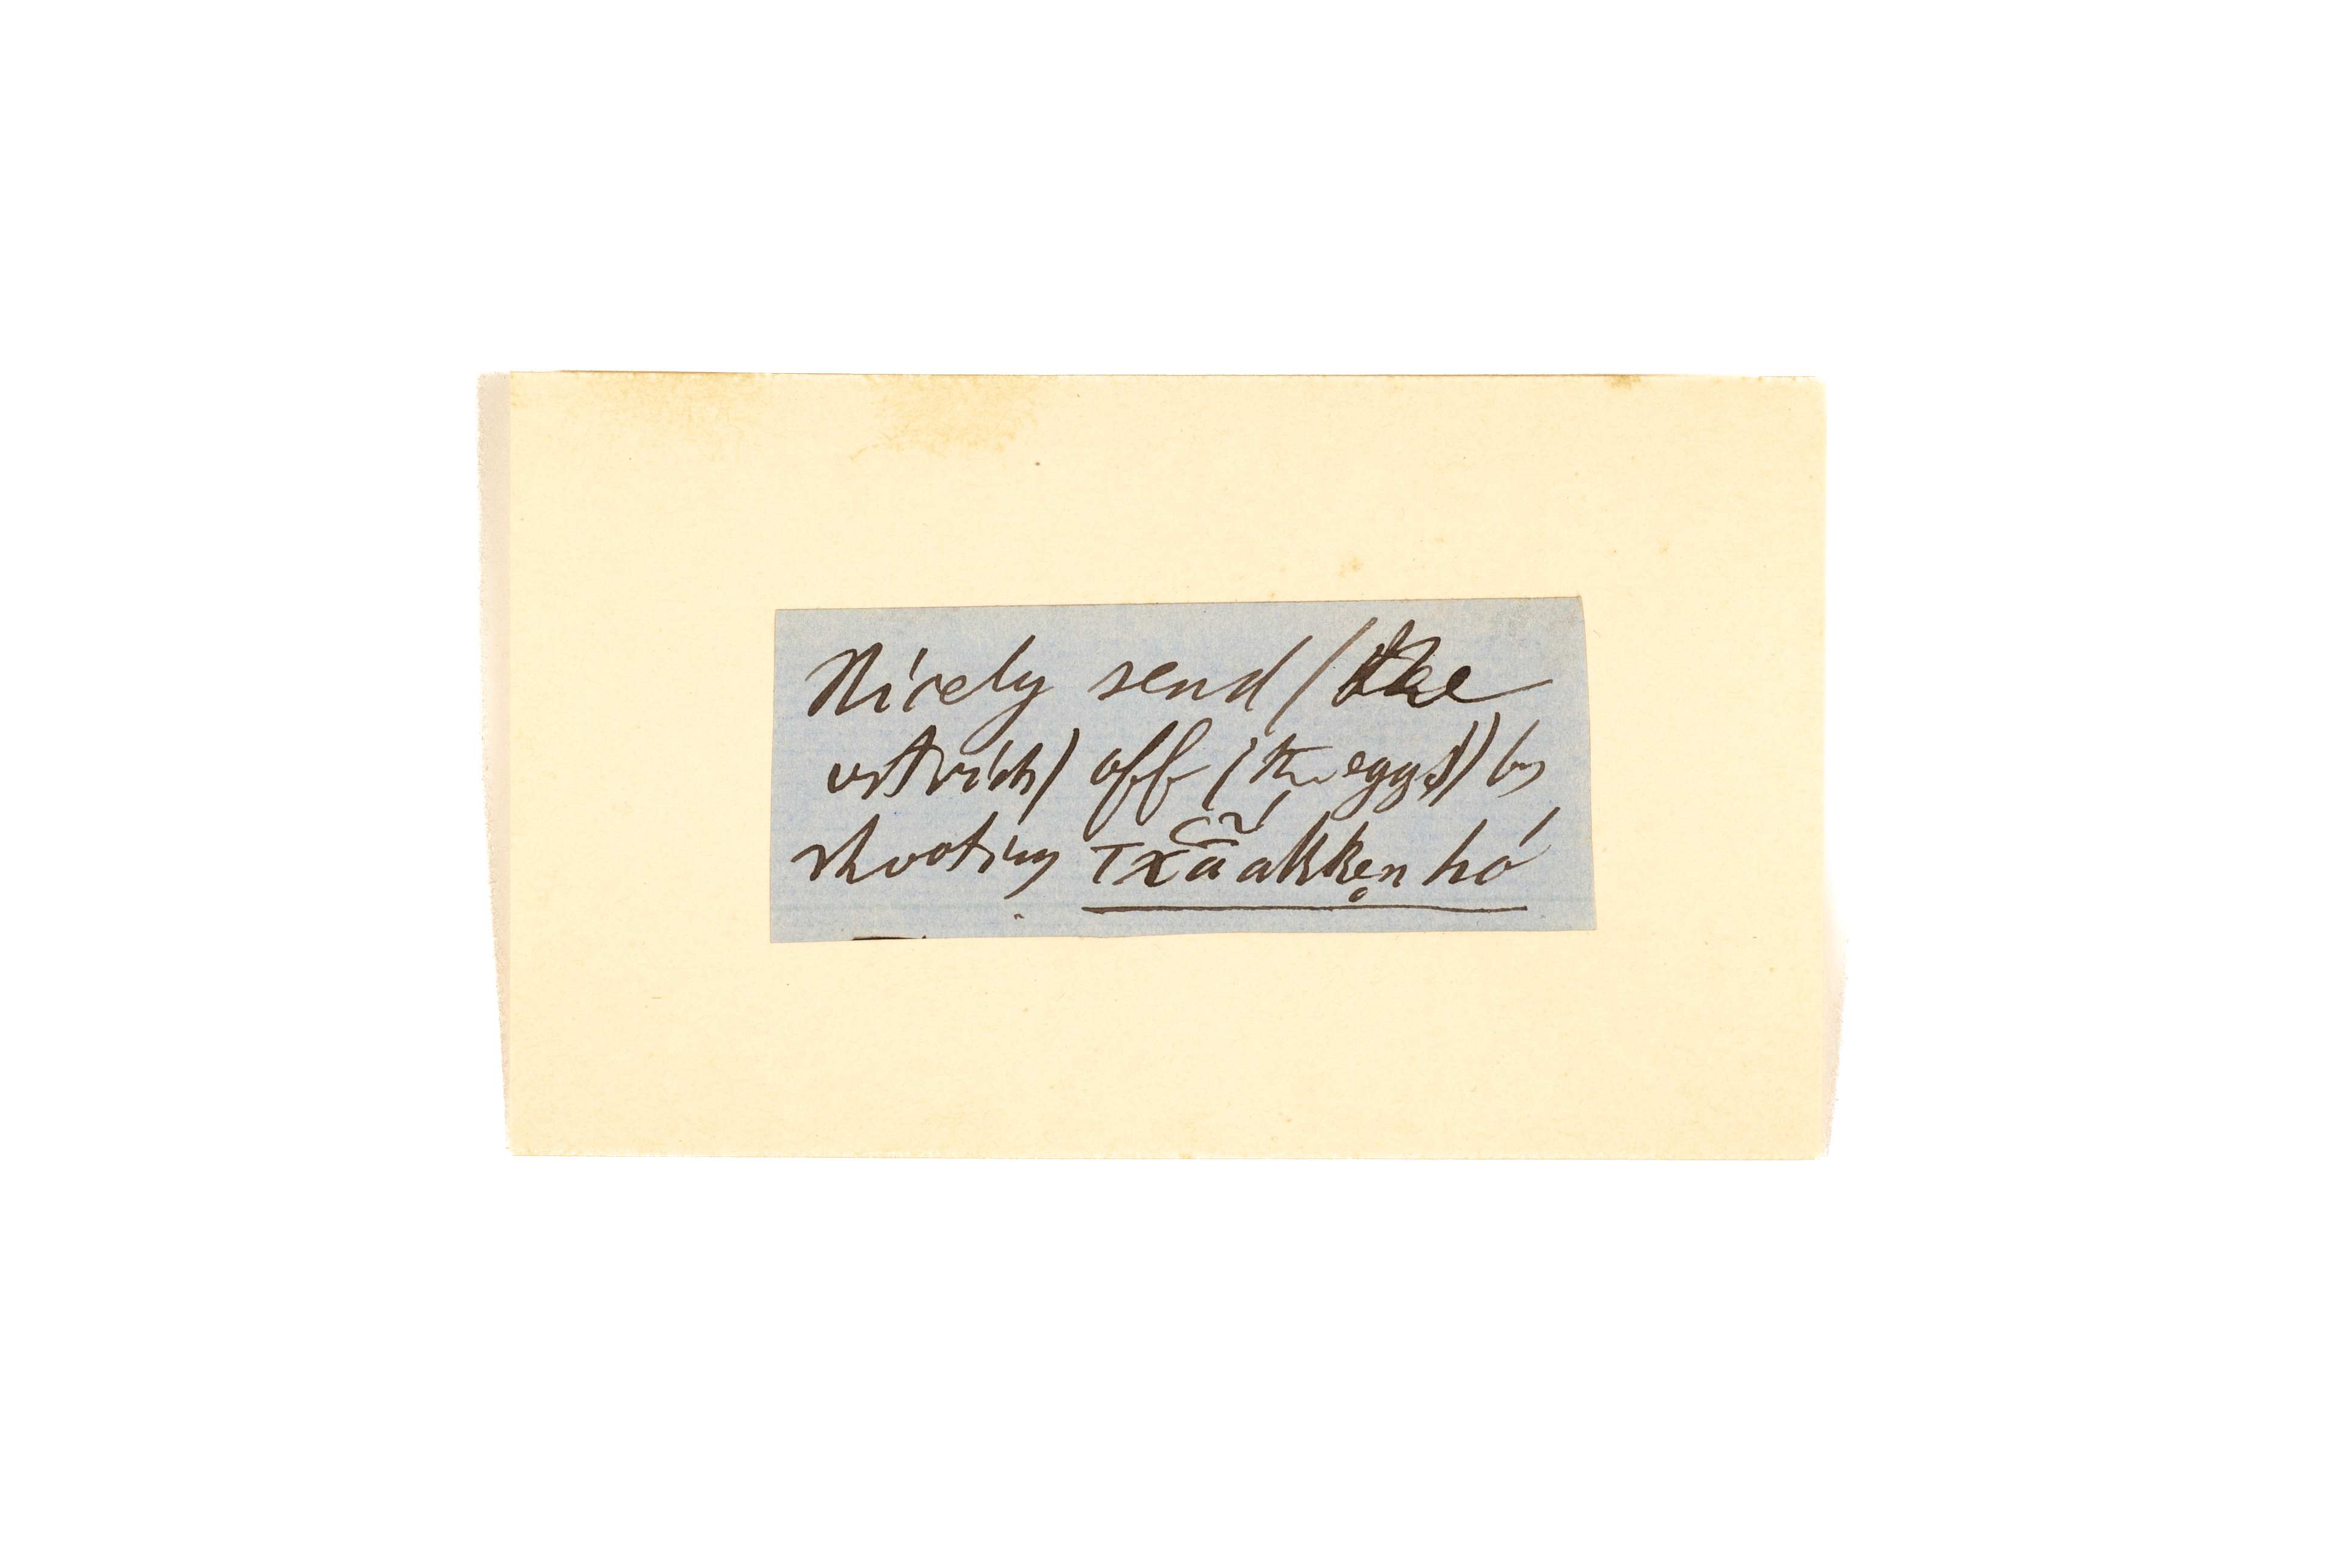 Nicely send (the
ostrich) off (the eggs) by
shooting Txã́akken̥ hó